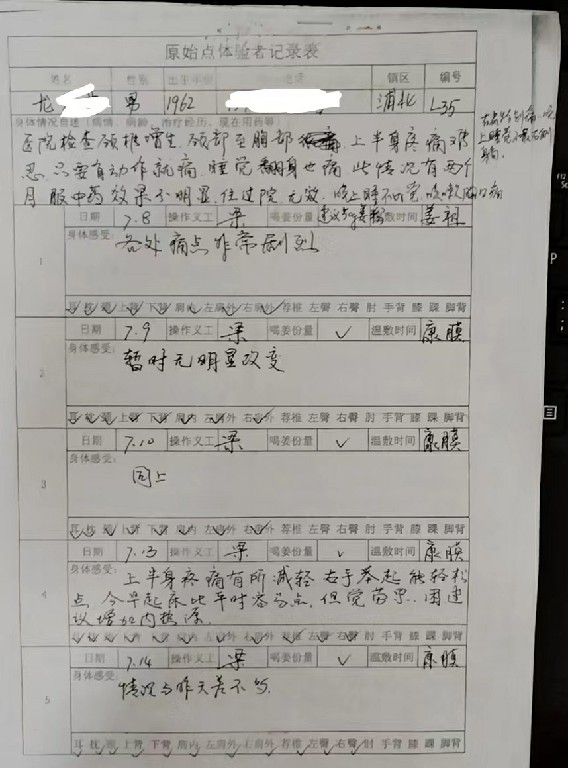 原始点体验者记录表
姓名 性别 出生年份 镇区 编号
龙 男 1962 浦北 L35
身体情况自述（病情、病龄、治疗经历、现在用药等）：
医院检查颈椎增生 颈部至胸部 上半身疼痛难
忍 只要有动作就痛 睡觉翻身也痛 此情况有两个
月 服中药效果不明显 住过院 无效 晚上睡不觉 咳嗽胸口痛
日期 7.8 操作义工 梁 喝姜份量 温敷时间 姜粗
身体感受：
各处痛点非常剧烈
1
耳 枕 颈 上背 下背 肩内 左肩外 右肩外 荐椎 左臀 右臀 肘 手背 膝 踝 脚背
日期 7.9 操作义工 梁 喝姜份量 ✓ 温敷时间 康膜
身体感受：
暂时无明显改变
2
耳 枕 颈 上背 下背 肩内 左肩外 右肩外 荐椎 左臀 右臀 肘 手背 膝 踝 脚背
日期 7.10 操作义工 梁 喝姜份量 ✓ 温敷时间 康膜
身体感受：
同上
3
耳 枕 颈 上背 下背 肩内 左肩外 右肩外 荐椎 左臀 右臀 肘 手背 膝 踝 脚背
日期 7.13 操作义工 梁 喝姜份量 ✓ 温敷时间 康膜
身体感受：
上半身疼痛有所减轻 右手举起能轻松
4
点 今早起床比平时容易点，但觉苦累．因建
议增加内热源．
耳 枕 颈 上背 下背 肩内 左肩外 右肩外 荐椎 左臀 右臀 肘 手背 膝 踝 脚背
日期 7.14 操作义工 梁 喝姜份量 ✓ 温敷时间 康膜
身体感受：
情况与昨天差不多
5
耳 枕 颈 上背 下背 肩内 左肩外 右肩外 荐椎 左臀 右臀 肘 手背 膝 踝 脚背